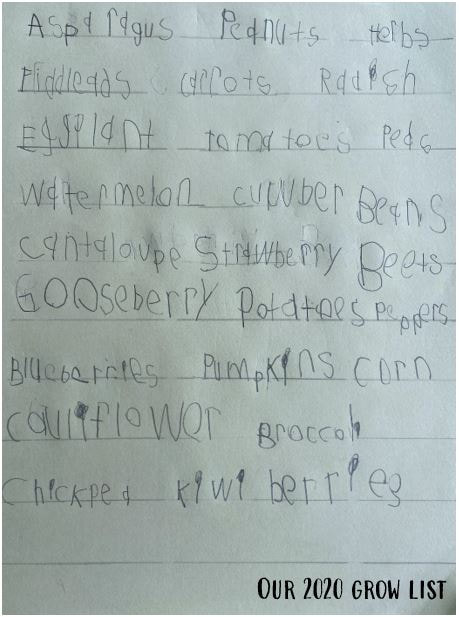 Asparagus Peanuts Herbs
Fiddleads carrots Radish
Eggplant tomatoes peas
Watermelon cucuber Beans
cantaloupe Strawberry Beets
Gooseberry Potatoes Peppers
Blueberries Pumpkins corn
cauliflower Broccoli
Chickpea kiwi berries
OUR 2020 GROW LIST